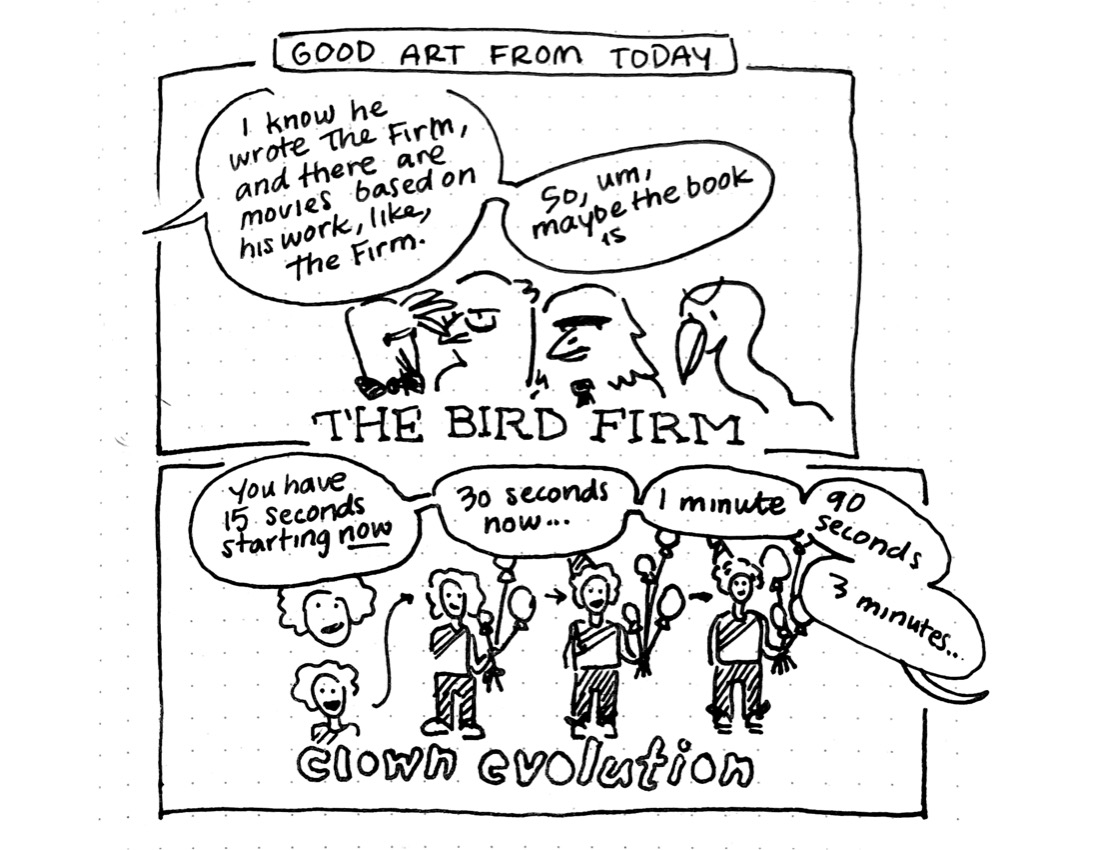 GOOD ART FROM TODAY
I know he
wrote The Firm,
and there are
movies based on
his work, like,
the Firm.
So, um,
maybe the book
is
THE BIRD FIRM
You have
15 seconds
starting now
30 seconds
now...
1 minute
90
seconds
3 minutes...
clown evolution